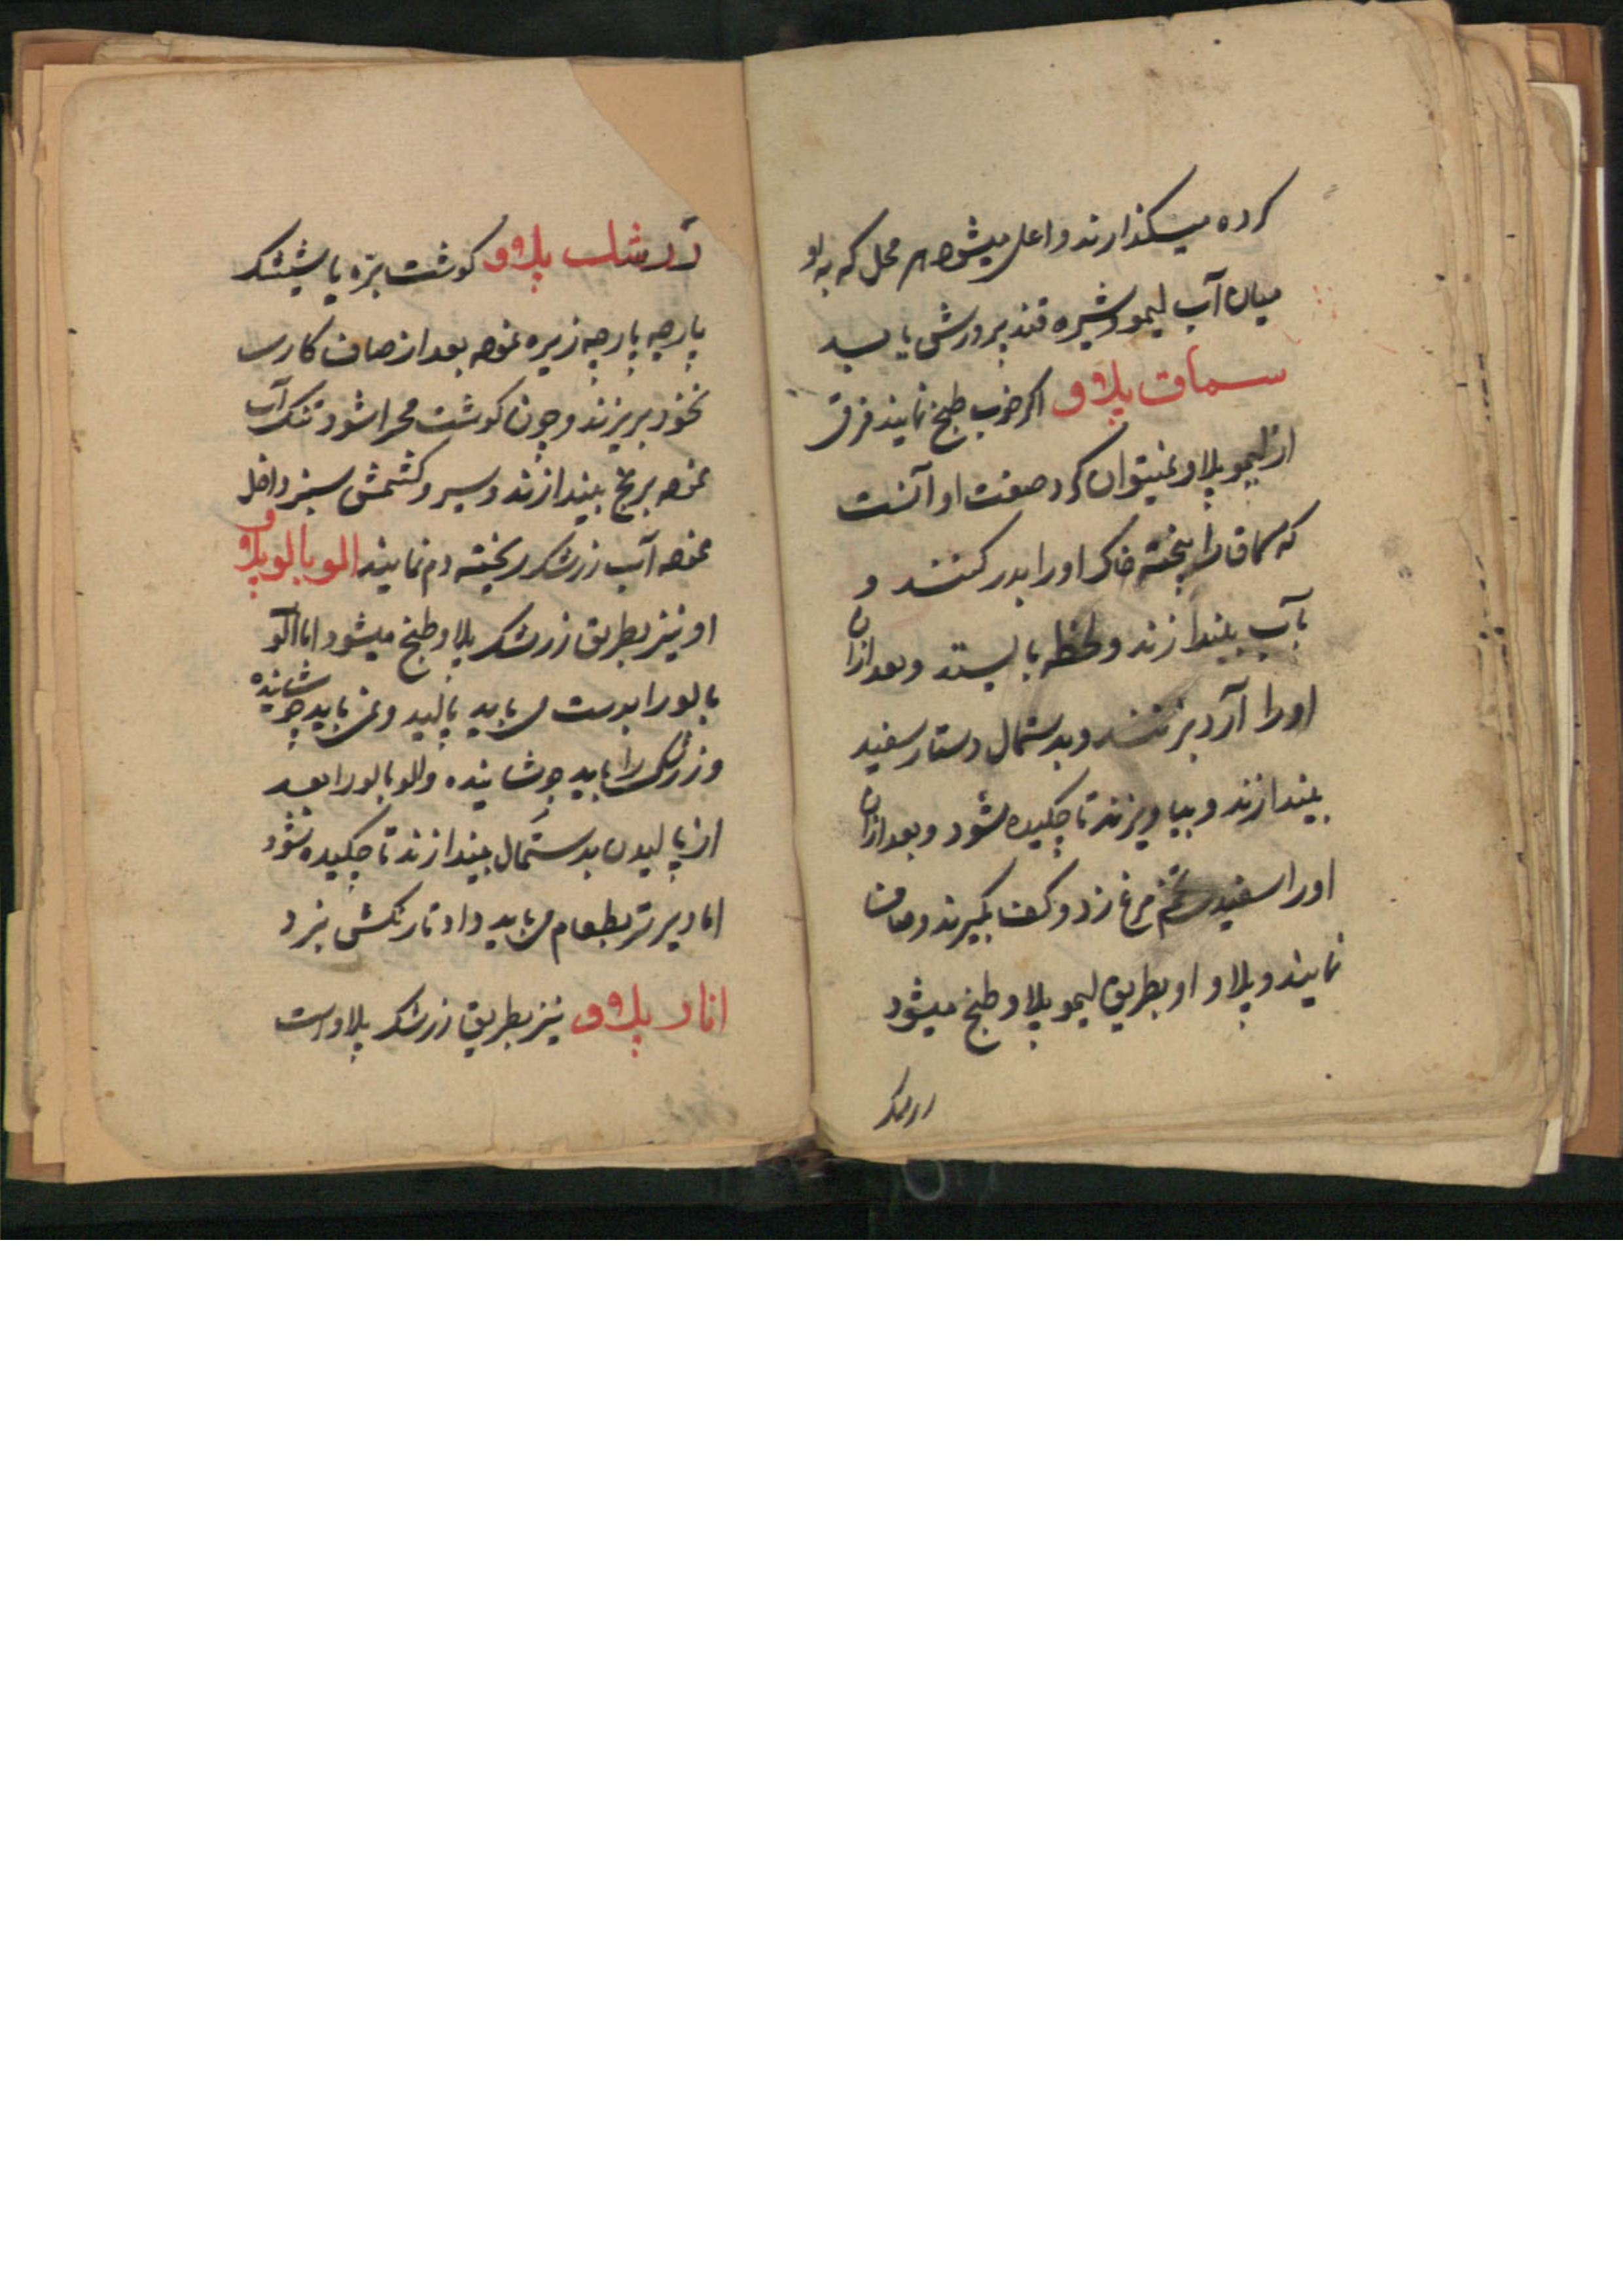 کرده میگذارند و اعلی میشود هر محل که به او
میان آب لیمو و شیره قند پرورش یابد
سماق پلاو اکر خوب طبخ نمایند فرق
از لیمو پلاو نمیتوان کرد صفت او آنست
که سماق را بیخته خاک او را بدر کنند و
بآب بیندازند و لحظه بایستد و بعد ازان
اورا آرد بزنند و بدستمال دستار سفید
بیندازند و بیاویزند تا چکیده شود و بعد ازان
اورا سفیده تخم مرغ زد و کف بکیرند و صاف
نمایند و پلاو او بطریق لیمو پلاو طبخ میشود
زرشک
زرشک پلاو کوشت بره یا شیشک
پارچه پارچه زیره نموده بعد از صاف کاری
نخود بریزند و چون کوشت مهرا شود تنک آب
نموده برنج بیندازند و سیر و کشمش سبز داخل
نموده آب زرشک ریخته دم نمایند الوبالو پلاو
او نیز بطریق زرشک پلاو طبخ میشود اما الو
بالو را بدست می باید پالید و نمی باید جوشانیده
و زرشک را باید جوشانیده والوبالو را بعد
از پالیدن بدستمال بیندازند تا چکیده شود
اما دیرتر بطعام می باید داد تا رنکش نبرد
انار پلاو نیز بطریق زرشک پلاو است